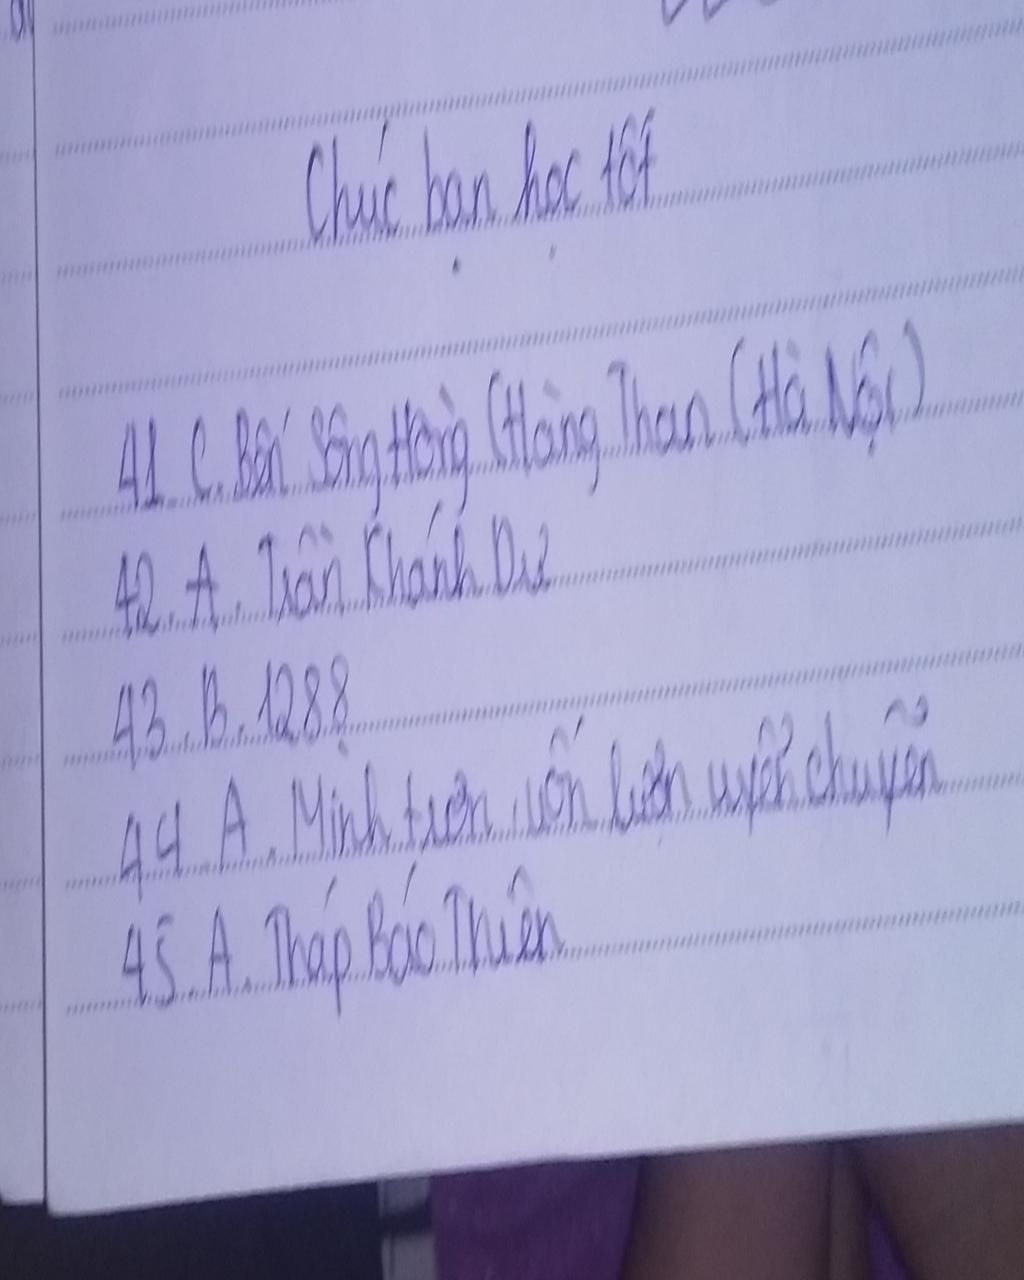 Chúc bạn học tốt
41. C. Bến Sông Hồng (Hàng Than (Hà Nội)
42. A. Trần Khánh Dư
43. B. 1288
44 A. Mình tròn, uốn lượn uyển chuyển
45. A. Tháp Báo Thiên